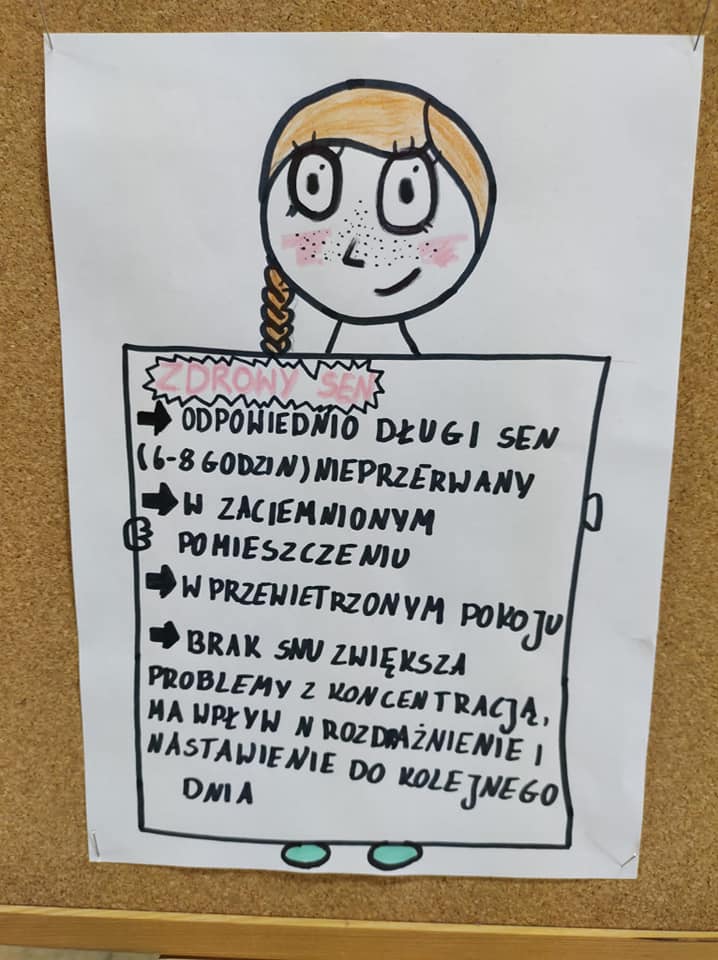 ZDROWY SEN
➡ ODPOWIEDNIO DŁUGI SEN
(6-8 GODZIN) NIEPRZERWANY
➡ W ZACIEMNIONYM
POMIESZCZENIU
➡ W PRZEWIETRZONYM POKOJU
➡ BRAK SNU ZWIĘKSZA
PROBLEMY Z KONCENTRACJĄ,
MA WPŁYW N ROZDRAŻNIENIE I
NASTAWIENIE DO KOLEJNEGO
DNIA